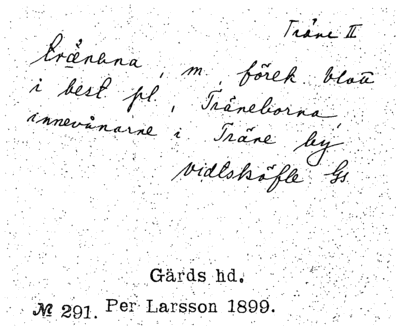 Träne II
träna̤na, m, förek. blott
i best. pl., Träneborna,
innevånarne i Träne by
Vidtsköfle Gs
Gärds hd.
№ 291. Per Larsson 1899.